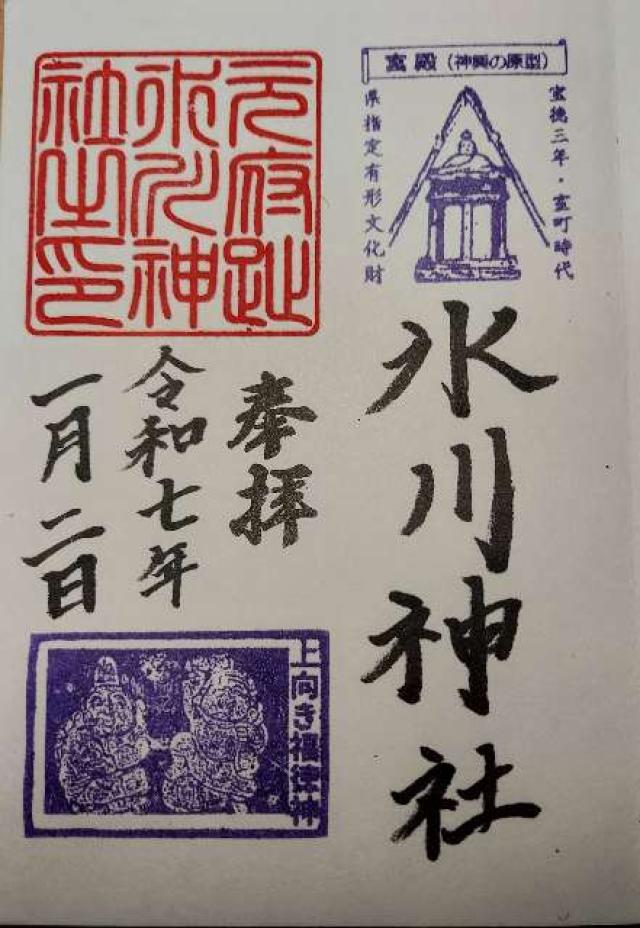 宮殿(神輿の原型)
宝徳三年・室町時代
県指定有形文化財
氷川神社
元府趾
氷川神
社之印
奉拝
令和七年
一月二日
上向き福徳神